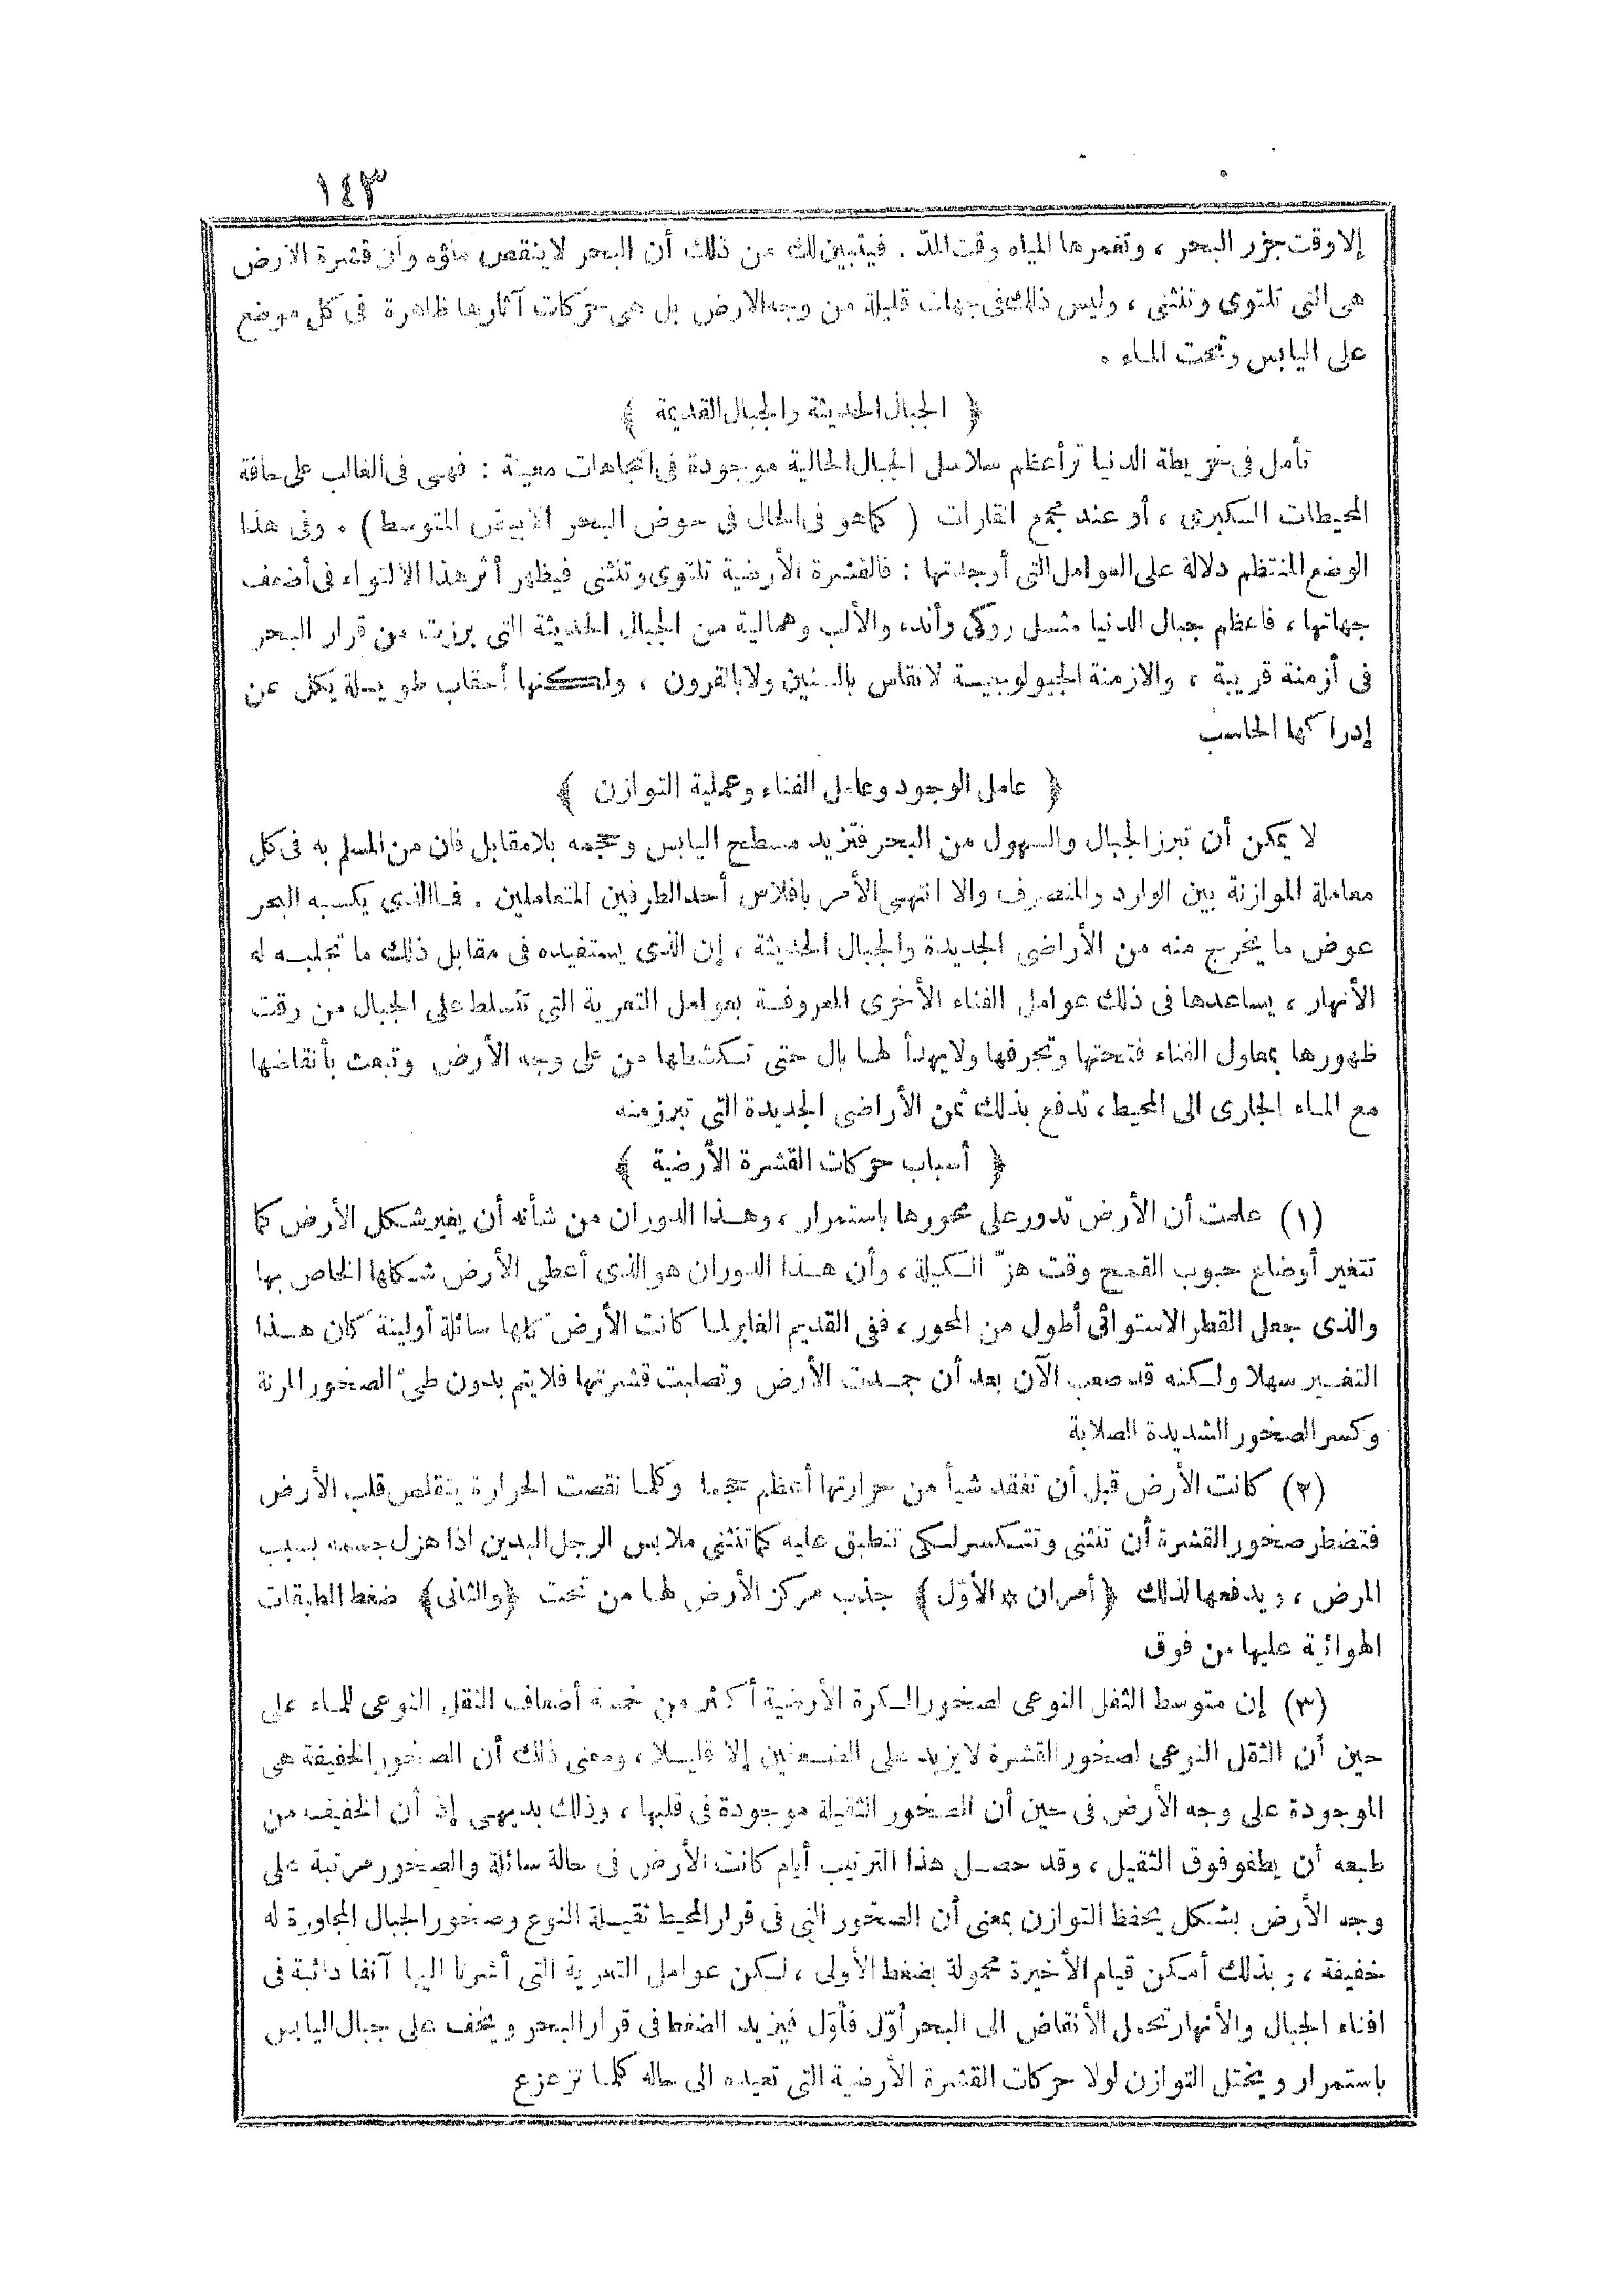 ١٤٣
إلا وقت جزر البحر ، وتغمرها المياه وقت المدّ . فيتبين لك من ذلك أن البحر لا ينقص ماؤه وأن قشرة الأرض
هى التى تلتوى وتنثنى ، وليس ذلك فى جهات قليلة من وجه الارض بل هى حركات آثارها ظاهرة فى كل موضع
على اليابس وتحت الماء .
﴿ الجبال الحديثة والجبال القديمة ﴾
تأمل فى خريطة الدنيا تر أعظم سلاسل الجبال الحالية موجودة فى اتجاهات معينة : فهى فى الغالب على حافة
المحيطات الكبرى ، أو عند مجمع القارات ( كما هو فى الحال فى حوض البحر الأبيض المتوسط ) . وفى هذا
الوضع المنتظم دلالة على العوامل التى أوجدتها : فالقشرة الأرضية تلتوى وتنثنى فيظهر أثر هذا الالتواء فى أضعف
جهاتها ، فاعظم جبال الدنيا مثل روكى وأنده والألب وهمالية من الجبال الحديثة التى برزت من قرار البحر
فى أزمنة قريبة ، والازمنة الجيولوجيية لا تقاس بالسنين ولا بالقرون ، ولكنها أحقاب طويلة يكل عن
إدراكها الحاسب
﴿ عامل الوجود وعامل الفناء وعملية التوازن ﴾
لا يمكن أن تبرز الجبال والسهول من البحر فتزيد مسطح اليابس وحجمه بلا مقابل فان من المسلم به فى كل
معاملة الموازنة بين الوارد والمنصرف والا انتهى الأمر بافلاس أحد الطرفين المتعاملين . فما الذى يكسبه البحر
عوض ما يخرج منه من الأراضى الجديدة والجبال الحديثة ، إن الذى يستفيده فى مقابل ذلك ما تجلبه له
الأنهار ، يساعدها فى ذلك عوامل الفناء الأخرى المعروفة بعوامل التعرية التى تتسلط على الجبال من وقت
ظهورها بمعاول الفناء فتنحتها وتجرفها ولا يهدأ لها بال حتى تكشطها من على وجه الأرض وتبعث بأنقاضها
مع الماء الجارى الى المحيط ، تدفع بذلك ثمن الأراضى الجديدة التى تبرز منه
﴿ أسباب حركات القشرة الأرضية ﴾
(١) علمت أن الأرض تدور على محورها باستمرار ، وهذا الدوران من شأنه أن يغير شكل الأرض كما
تتغير أوضاع حبوب القمح وقت هزّ الكيلة ، وأن هذا الدوران هو الذى أعطى الأرض شكلها الخاص بها
والذى جعل القطر الاستوائى أطول من المحور ، ففى القديم الغابر لما كانت الأرض كلها سائلة أو لينة كان هذا
التغيير سهلا ولكنه قد صعب الآن بعد أن جمدت الأرض وتصلبت قشرتها فلا يتم بدون طىّ الصخور المرنة
وكسر الصخور الشديدة الصلابة
(٢) كانت الأرض قبل أن تفقد شيأ من حرارتها أعظم حجما وكلما نقصت الحرارة يتقلص قلب الأرض
فتضطر صخور القشرة أن تنثنى وتتكسر لكى تنطبق عليه كما تنثنى ملابس الرجل البدين اذا هزل جسمه بسبب
المرض ، ويدفعها لذلك ﴿ أمران * الأوّل ﴾ جذب مركز الأرض لها من تحت ﴿ والثانى ﴾ ضغط الطبقات
الهوائية عليها من فوق
(٣) إن متوسط الثقل النوعى لصخور الكرة الأرضية أكثر من خمسة أضعاف الثقل النوعى للماء على
حين أن الثقل النوعى لصخور القشرة لا يزيد على الضعفين إلا قليلا ، ومعنى ذلك أن الصخور الخفيفة هى
الموجودة على وجه الأرض فى حين أن الصخور الثقيلة موجودة فى قلبها ، وذلك بديهى إذ أن الخفيف من
طبعه أن يطفو فوق الثقيل ، وقد حصل هذا الترتيب أيام كانت الأرض فى حالة سائلة والصخور مرتبة على
وجه الأرض بشكل يحفظ التوازن بمعنى أن الصخور التى فى قرار المحيط ثقيلة النوع وصخور الجبال المجاورة له
خفيفة ، وبذلك أمكن قيام الأخيرة محمولة بضغط الأولى ، لكن عوامل التعرية التى أشرنا اليها آنفا دائبة فى
افناء الجبال والأنهار تحمل الأنقاض الى البحر أوّل فأوّل فيزيد الضغط فى قرار البحر ويخف على جبال اليابس
باستمرار ويختل التوازن لولا حركات القشرة الأرضية التى تعيده الى حاله كلما تزعزع